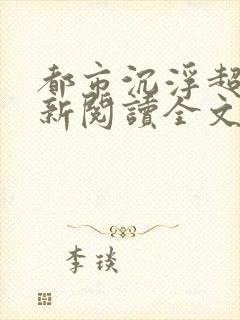 都市沉浮超
新閱讀全文
李琰